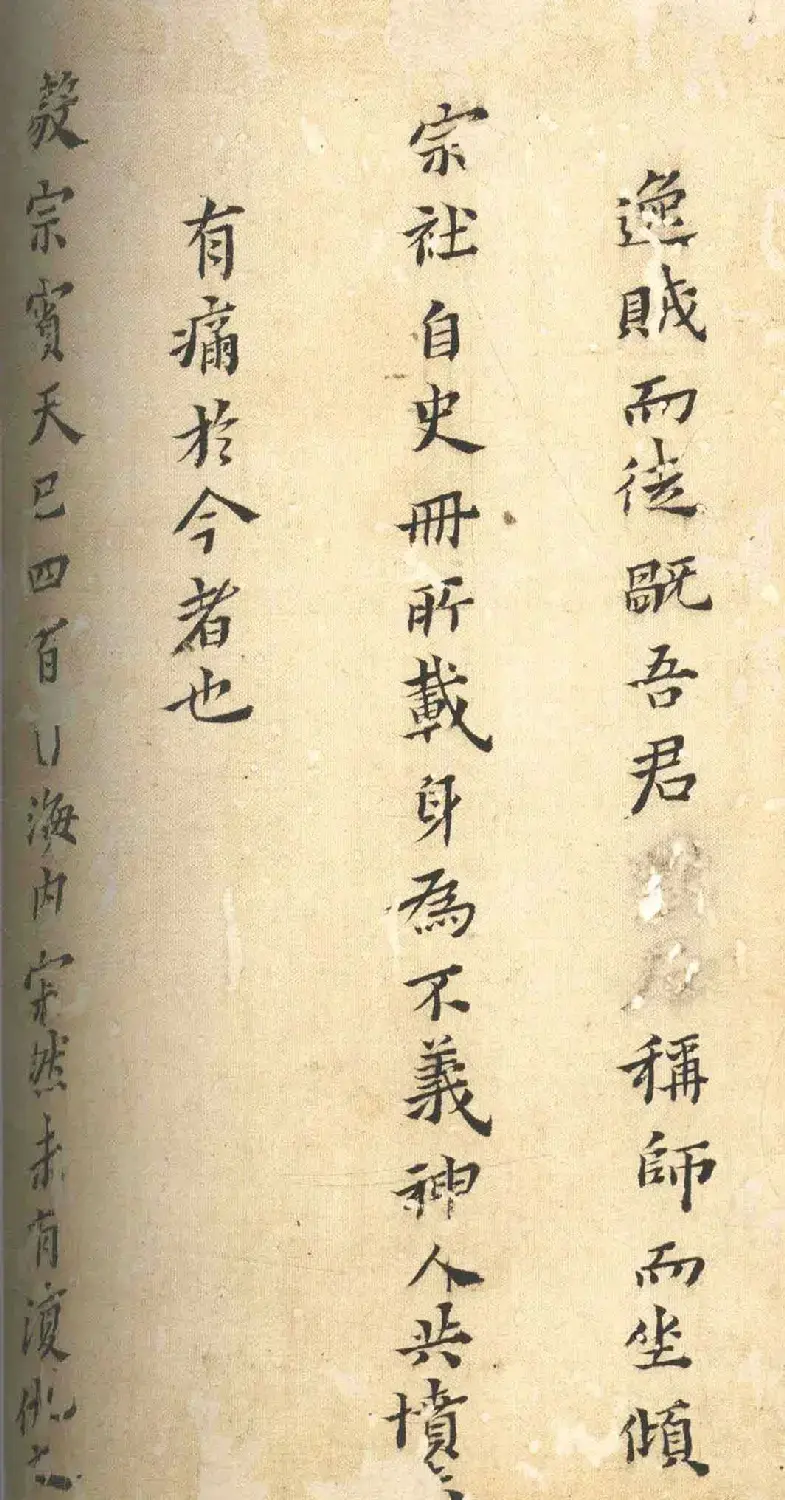 逸賊而徒吾君稱師而坐傾
宗社自史冊所載身為不義神人共憤
有痛於今者也
毅宗賓天已四百日海內寂然未有復